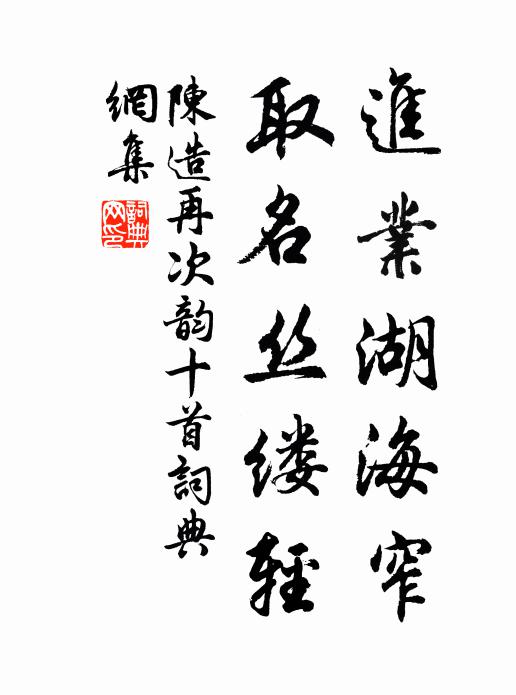 進業湖海窄
取名丝缕輕
陳造再次韵十首詞典
網集
詞典
网印